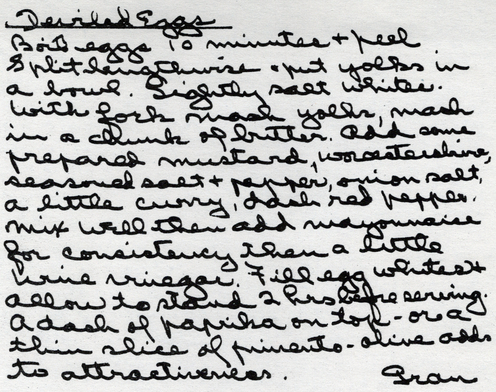 Deviled Eggs
Boil eggs 10 minutes + peel
Split lengthwise + put yolks in
a bowl. Lightly salt whites.
With fork mash yolks, mash
in a chunk of butter. Add some
prepared mustard, worcestershire,
seasoned salt + pepper, onion salt,
a little curry, dash red pepper.
Mix well then add mayonnaise
for consistency then a little
wine vinegar. Fill egg whites +
allow to stand 2 hrs before serving.
A dash of paprika on top - or a
thin slice of pimento-olive adds
to attractiveness. Gran